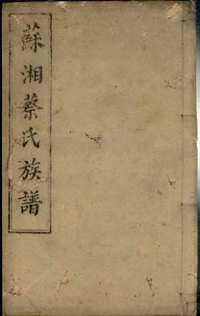 蘇湘蔡氏族譜